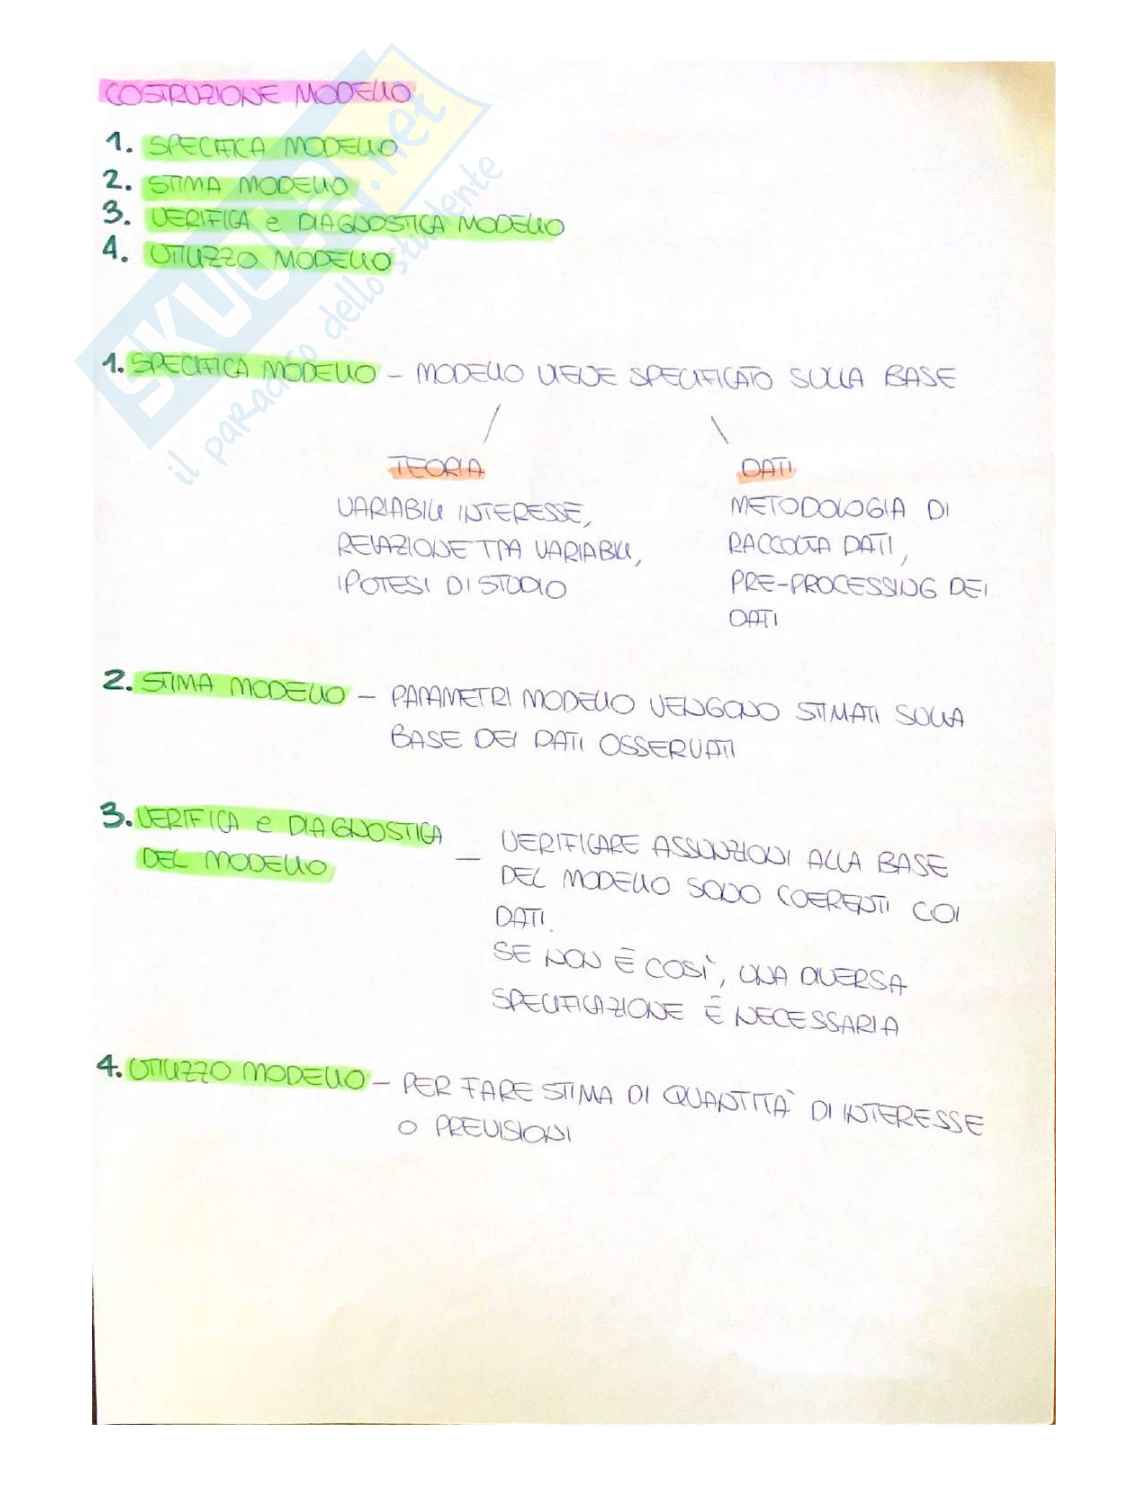 COSTRUZIONE MODELLO
1. SPECIFICA MODELLO
2. STIMA MODELLO
3. VERIFICA e DIAGNOSTICA MODELLO
4. UTILIZZO MODELLO
SKUOLA.net
il paradiso dello studente
1. SPECIFICA MODELLO - MODELLO VIENE SPECIFICATO SULLA BASE
TEORIA
VARIABILI INTERESSE,
RELAZIONE TRA VARIABILI,
IPOTESI DI STUDIO
DATI
METODOLOGIA DI
RACCOLTA DATI,
PRE-PROCESSING DEI
DATI
2. STIMA MODELLO - PARAMETRI MODELLO VENGONO STIMATI SULLA
BASE DEI DATI OSSERVATI
3. VERIFICA e DIAGNOSTICA
DEL MODELLO - VERIFICARE ASSUNZIONI ALLA BASE
DEL MODELLO SONO COERENTI COI
DATI.
SE NON È COSÌ, UNA DIVERSA
SPECIFICAZIONE È NECESSARIA
4. UTILIZZO MODELLO - PER FARE STIMA DI QUANTITÀ DI INTERESSE
O PREVISIONI